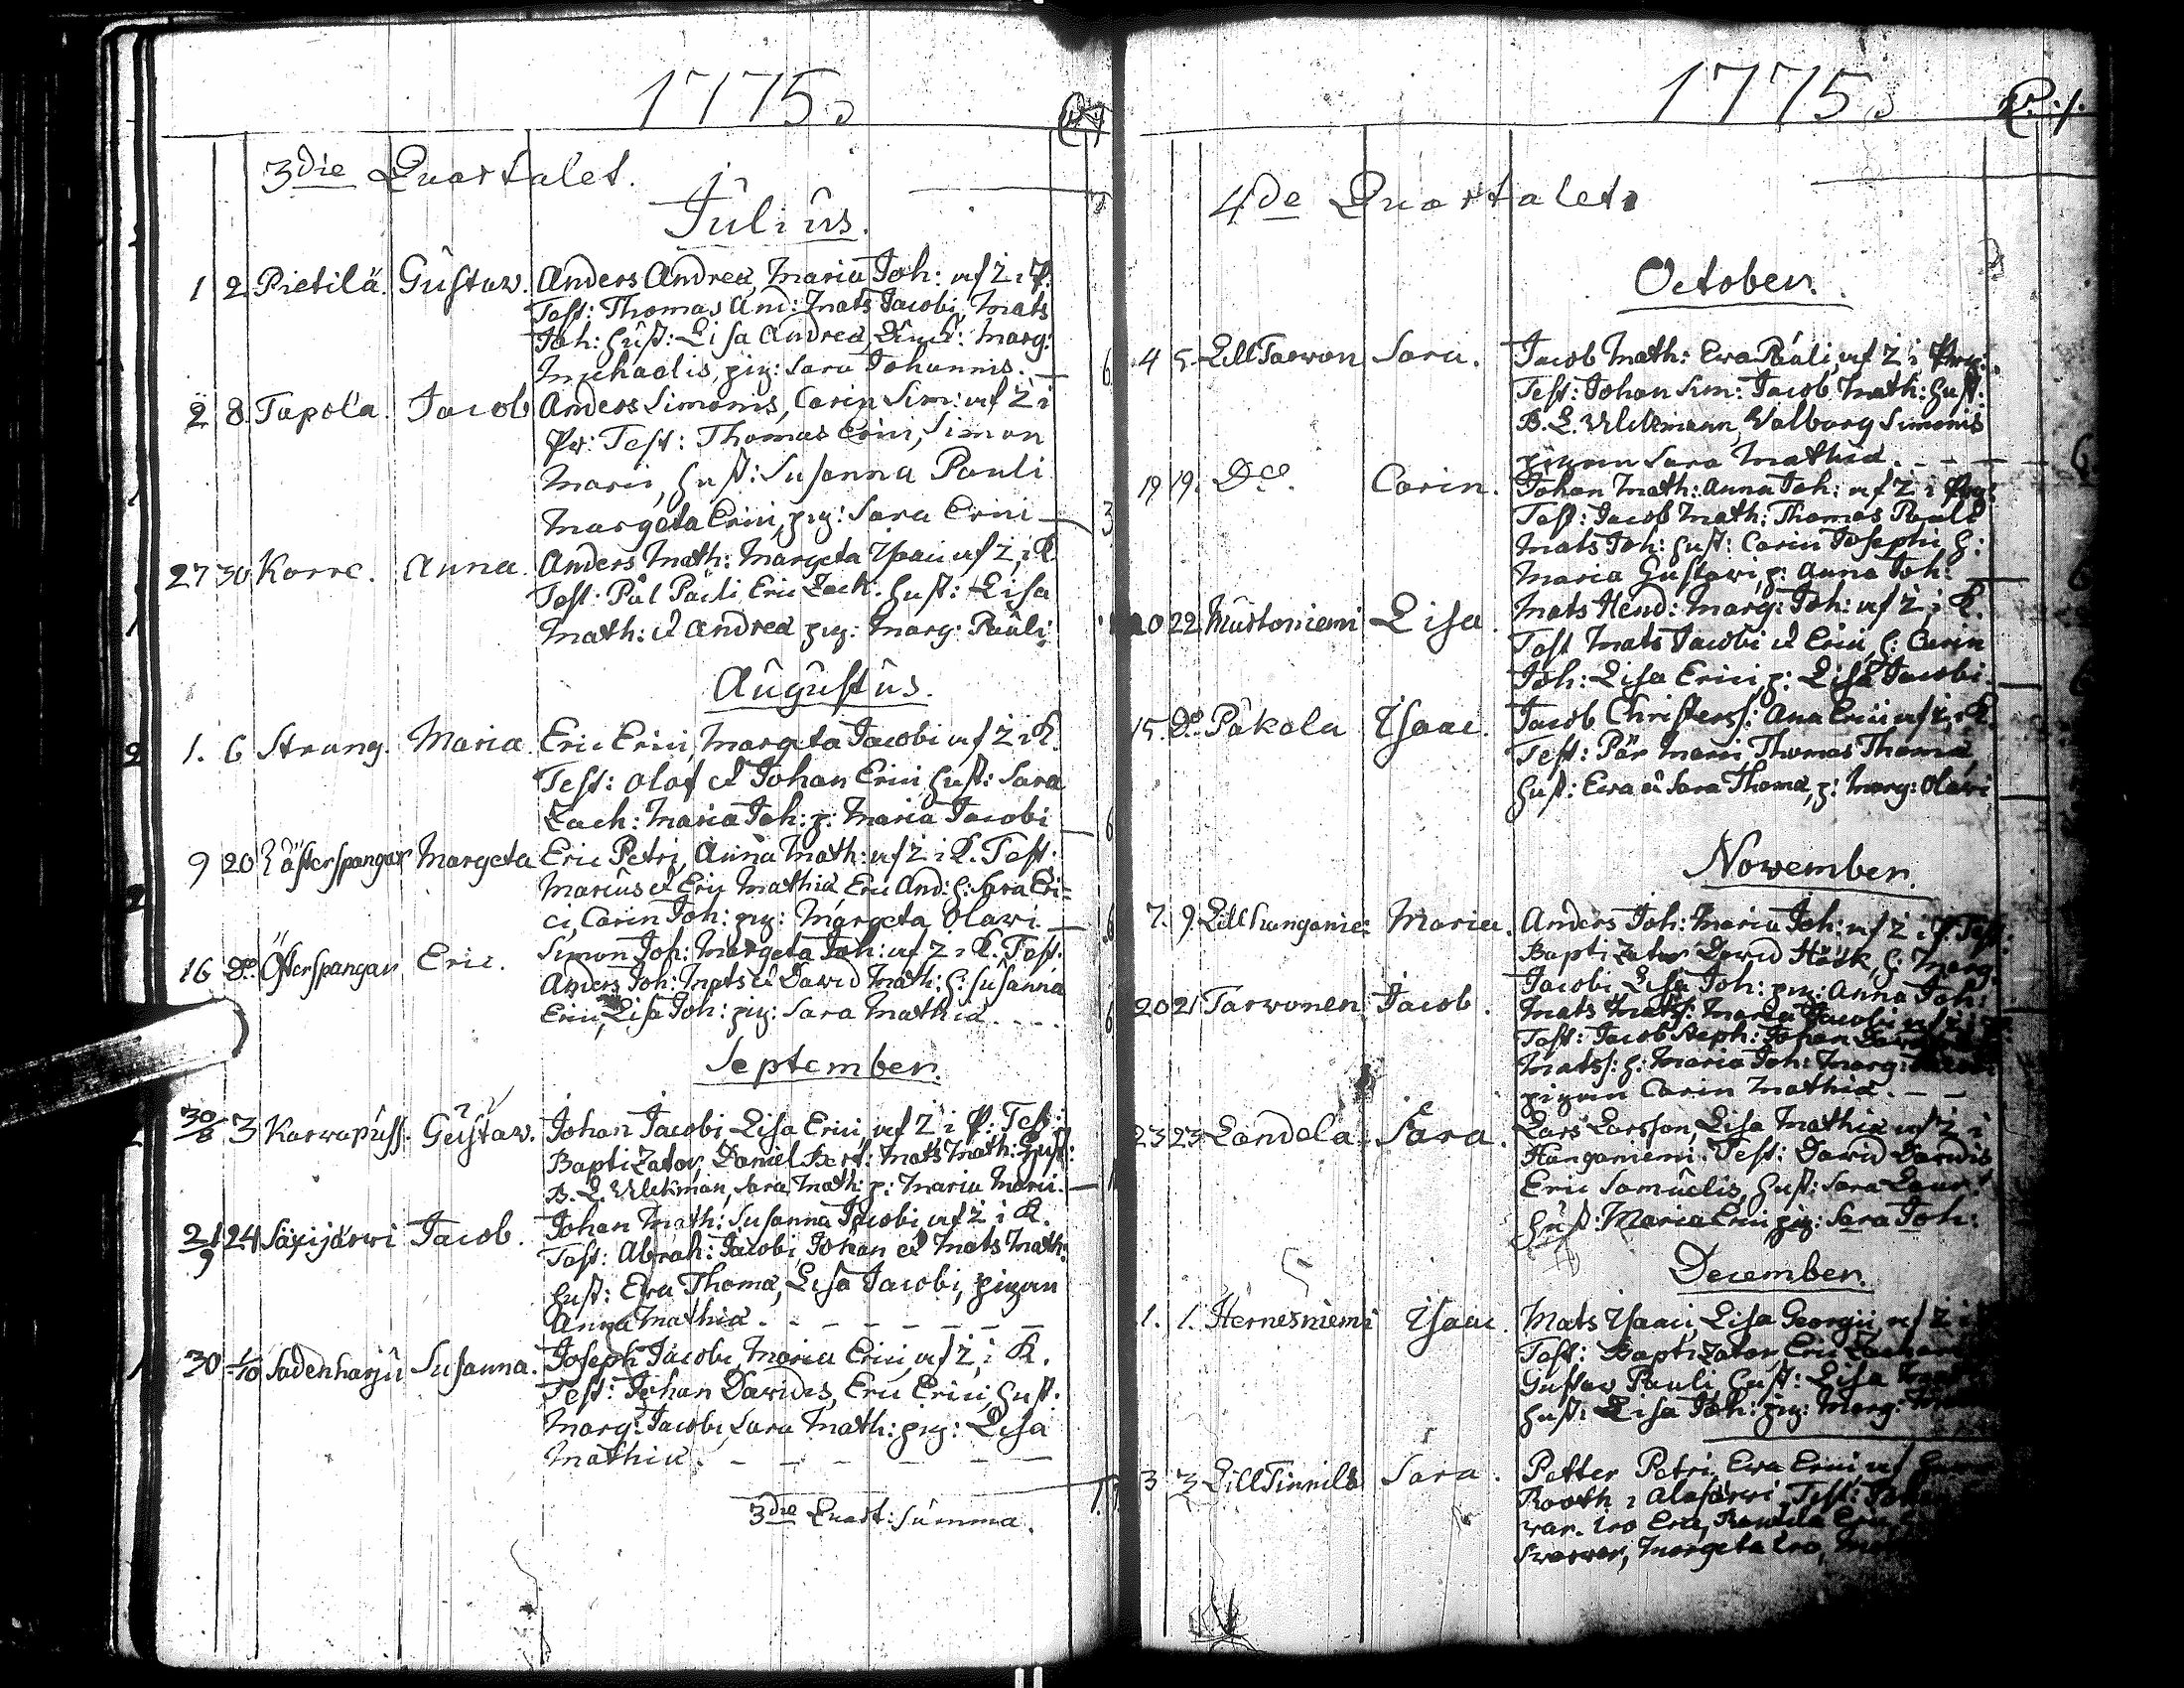 1775
3die Quartalet.
Julius.
1 2 Pietilä. Gustav. Anders Andreæ, Maria Joh: uf Z i P.
Test: Thomas And: Mats Jacobi, Mats
Joh: Hust: Lisa Andreæ, Marg:
Michaelis, pig: Sara Johannis.
2 8 Tapola. Jacob Anders Simonis, Carin Sim: uf Z i
Pr: Test: Thomas Erici, Simon
Marci, Hust: Susanna Pauli
Margeta Erici, pig: Sara Erici
27 30 Korre. Anna. Anders Math: Margeta Isaaci uf Z i K.
Test: Pål Pauli, Eric Zach: Hust: Lisa
Math: et Andreæ pig: Marg: Pauli
Augustus.
1. 6 Strang. Maria. Eric Erici, Margeta Jacobi uf Z i K.
Test: Olof et Johan Erici, Hust: Sara
Zach: Maria Joh: p: Maria Jacobi
9 20 Margeta Eric Petri, Anna Math: uf Z i K. Test:
Marcus et Eric Mathiæ, Eric And: H: Sara Eri=
ci, Carin Joh: pig: Margeta Olavi.
16 Do Österspangar Eric. Simon Joh: Margeta Joh: uf Z i K. Test.
Anders Joh: Mats et David Math: H: Susanna
Erici, Lisa Joh: pig: Sara Mathiæ
September.
30/8 3 Karvapuss. Gustav. Johan Jacobi, Lisa Erici uf Z i P: Test:
Baptizator, Daniel Bert: Mats Math: Hust:
B. L. Ulckman, Sara Math: p: Maria Marci.
21/9 24 Säxijärvi Jacob. Johan Math: Susanna Jacobi uf Z i K.
Test: Abrah: Jacobi, Johan et Mats Math:
Hust: Eva Thomæ, Lisa Jacobi, pigan
Anna Mathiæ
30 1/10 Sadenharju Susanna. Joseph Jacobi, Maria Erici, uf Z i K.
Test: Johan Davidis, Eric Erici, Hust:
Marg: Jacobi, Sara Math: pig: Lisa
Mathiæ.
3die Quart: Summa.
1775
4de Quartalet
October.
4 5 LillTarvon Sara. Jacob Math: Eva Pauli, uf Z i
Test: Johan Sim: Jacob Math: Hust:
B. L. Ulckmann, Valborg Simonis
pigan Sara Mathiæ.
19 19. Do. Carin. Johan Math: Anna Joh: uf Z i
Test: Jacob Math: Thomas Pauli
Mats Joh: Hust: Carin Josephi H:
Maria Gustavi, p: Anna Joh:
20 22 Mustoniemi Lisa. Mats Hend: Marg: Joh: uf Z i K.
Test Mats Jacobi et Erici, H: Carin
Joh: Lisa Erici p: Lisa Jacobi.
15. Do Påkola Isaac. Jacob Christerss: Ana Erici uf Z i K.
Test: Pär Marci, Thomas Thomæ,
Hust: Eva et Sara Thomæ, p: Marg: Olavi
November.
7. 9. Maria. Anders Joh: Maria Joh: uf Z i P. Test:
Baptizator David Höök, H: Marg:
Jacobi Lisa Joh: pig: Anna Joh:
20 21 Tarvonen. Jacob. Mats Matss: Maria Jacobi uf Z i
Test: Jacob Steph: Johan
Matss: H: Maria Joh: Marg:
pigan Carin Mathiæ.
23 23 Landola. Sara. Lars Larsson, Lisa Mathiæ uf Z i
Hanganiemi. Test: David Davidis
Eric Samuelis, Hust: Sara
Hust: Maria Erici pig: Sara Joh:
December.
1. 1. Hernesniemi Isaac. Mats Isaaci, Lisa Georgii, uf Z i
Test: Baptizator Eric
Gustav Pauli, Hust: Lisa
Hust: Lisa Joh: pig: Marg:
3 3 LillTinnilä Sara. Petter Petri, Eva Erici uf
Rooth i Alajärvi, Test:
Iro Eric,
Margeta Iro,